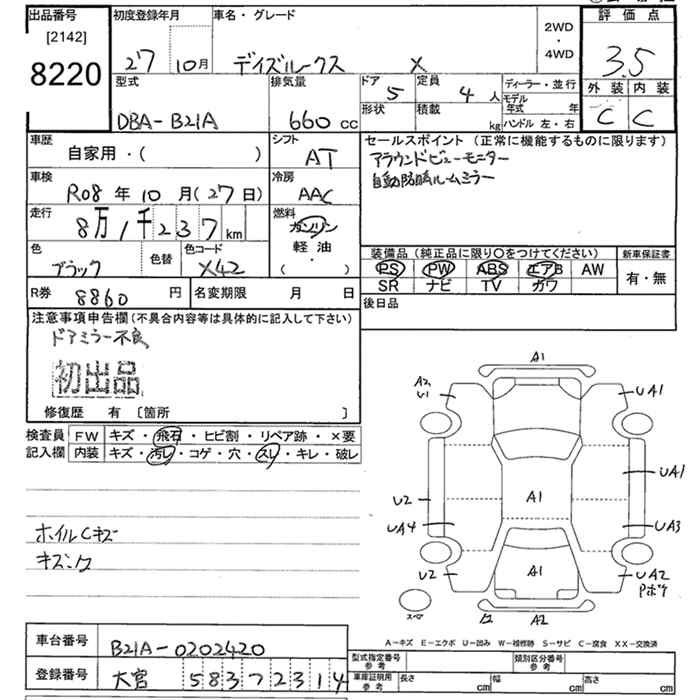 出品番号
[2142]
8220
初度登録年月
27 10月
車名・グレード
デイズルークス X
2WD
・
4WD
評価点
3.5
外装 内装
C C
型式
DBA-B21A
排気量
660 cc
ドア 5
形状
定員 4 人
積載 kg
ディーラー・並行
モデル年式 年
ハンドル 左・右
車歴
自家用・( )
シフト
AT
車検
R08年10月(27日)
冷房
AAC
走行
8万1千237 km
燃料
ガソリン
軽油
・
( )
色
ブラック
色替
色コード
X42
R券 8860 円
名変期限 月 日
セールスポイント (正常に機能するものに限ります)
アラウンドビューモニター
自動防眩ルームミラー
装備品(純正品に限り〇をつけてください)
PS PW ABS エアB AW
SR ナビ TV カワ
新車保証書
有・無
後日品
注意事項申告欄(不具合内容等は具体的に記入して下さい)
ドアミラー不良
初出品
修復歴 有 〔箇所 〕
検査員
記入欄
FW キズ・飛石・ヒビ割・リペア跡・×要
内装 キズ・汚レ・コゲ・穴・スレ・キレ・破レ
ホイルCキズ
A1
A2
U1
UA1
UA1
U2
A1
UA4
UA3
U2
A1
UA2
Pボケ
スペア
A2
A-キズ E-エクボ U-凹み W-補修跡 S-サビ C-腐食 XX-交換済
車台番号
B21A-0202420
登録番号
大宮 583 72314
型式指定番号
参考
類別区分番号
参考
車庫証明用
参考
長さ cm
幅 cm
高さ cm